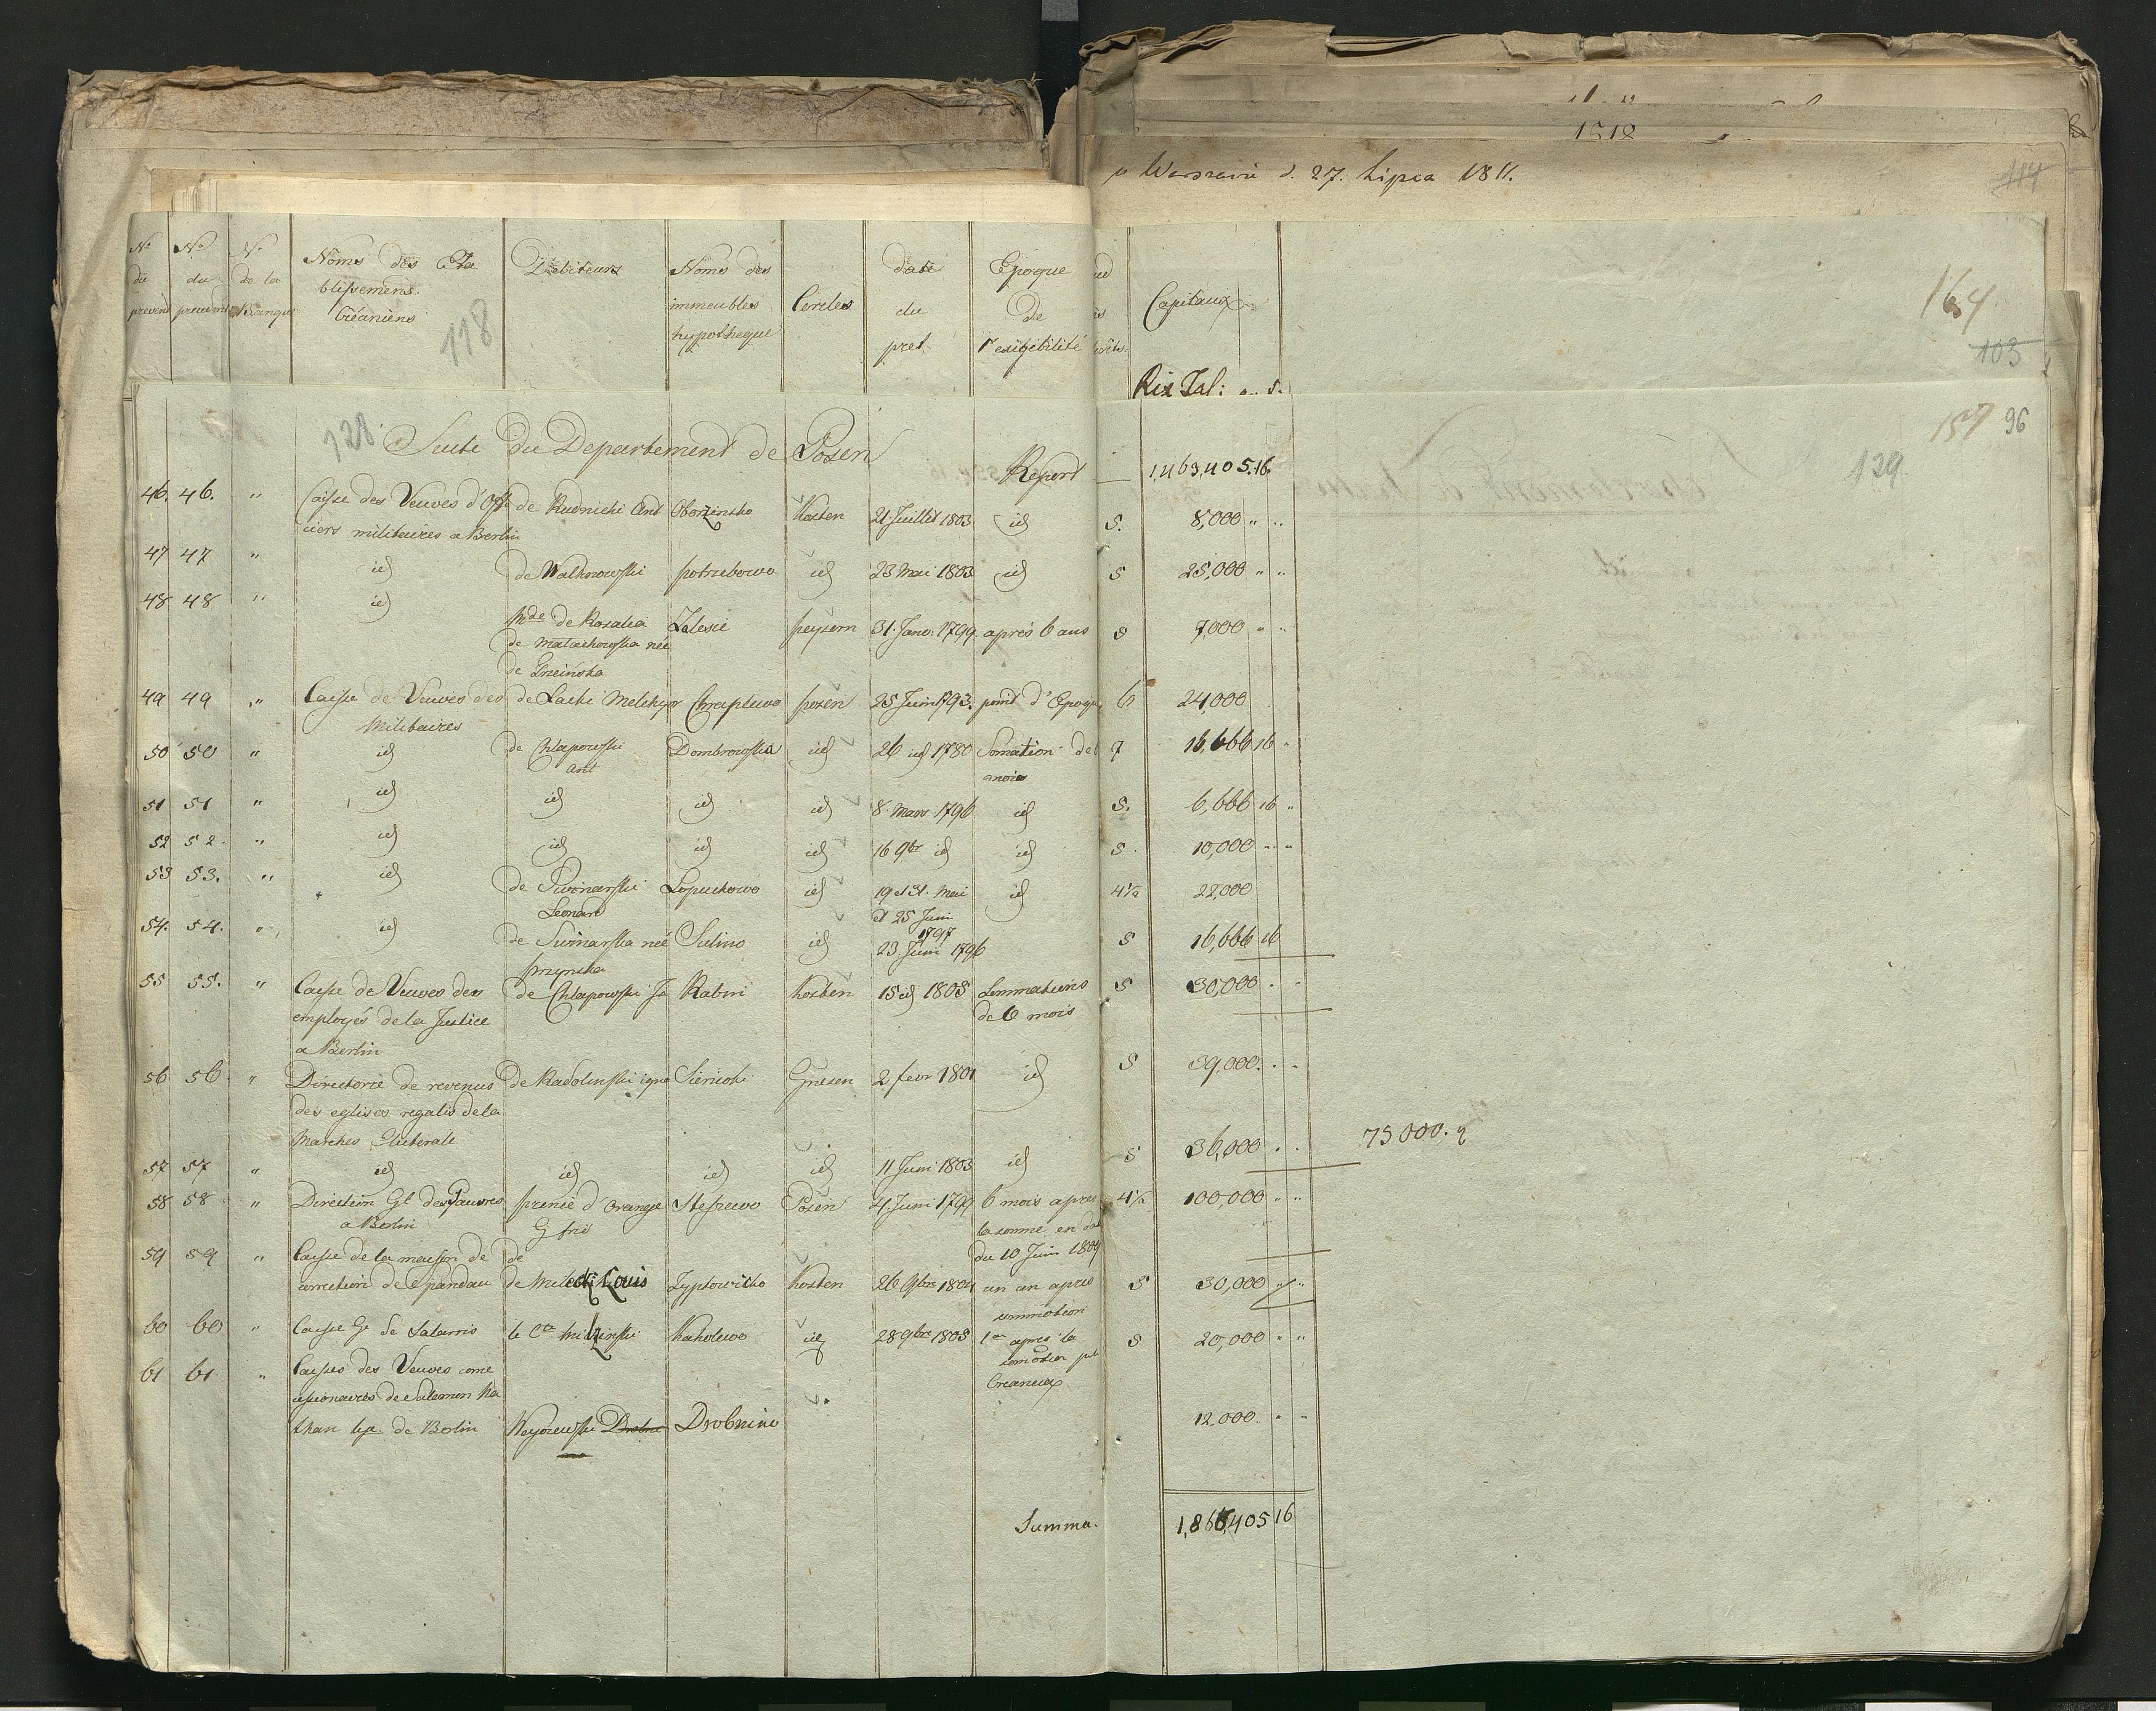 w Warszawie d. 27. Lipca 1811.
114
1512
No du present
No du precedent
No de la Banque
Noms des Eta
blissemens
Créanciers
118
Debiteurs
Noms des
immeubles
hypotheque
Cercles
date
du
pret
Epoque
de
l'exigibilité
Capitaux
Rix Tal:
164
103
157 96
129
128
Suite du Departement de Posen
Report — 1,463,405.16.
46. 46. " Caisse des Veuves d'Offi de Rudnicki And Oborzinsko Kosten 21 Juillet 1803 id 5. 8,000 " "
ciers militaires a Berlin
47 47 " id de Walknowski potrzebowo id 23 Mai 1803 id 5 25,000 " "
48 48 " id Mde de Rosalia Zalesie peysern 31. Janv. 1799. après 6 ans 5 7,000 " "
de Matachowska née
de
49 49 " Caisse de Veuves des de Lacki Melchyor Chraplewo posen 25 Juin 1793. point d'Epoque 6 24,000
Militaires
50 50 " id de Chlapowski Dombrowska id 26 id 1780 Somation de 6 7 16,666 16 "
Ant mois
51 51 " id id id id 8. Mars 1796 id 5. 6,666 16 "
52 52. " id id id id 16 9bre id id 5. 10,000 " "
53 53. " id de Swinarski Lopuchowo id 19 et 31. Mai id 4½ 22,000
Leonard et 25 Juin
1797
54. 54. " id de Swinarska née Sulino id 23. Juin 1796 5 16,666 16
55 55. " Caisse de Veuves des de Chlapowski Jo Rabin Kosten 15 id 1805 Sommations 5 30,000 " "
employés de la Justice de 6 mois
a Berlin
56 56 " Directorie de revenus de Radolinski igna Siernicki Gnesen 2 fevr 1801 id 5 39,000. " "
des eglises regalis de la
Marches Electerale
57 57 " id id id id 11 Juni 1803 id 5 36,000 " " 75000.
58 58 " Direction Gl des Pauvres prince d'Orange Stefzewo Posen 4. Juni 1799 6 mois apres 4½ 100,000 " "
a Berlin G frid la somme en dat
du 10 Juin 1809
59 59 " Caisse de la maison de de
correction de Spandau de Milecki Louis Zyptowicko Kosten 26 9bre 1804 un an apres 5 30,000 " "
sommation
60 60 " Caisse Gl de Salarris le Cte Milzinski Kakolewo id 28 9bre 1805 1 an apres la 5 20,000 " "
61 61 " Caisses des Veuves come
Creancier
de Salomon Na
than de Berlin Drobnino 12,000. " "
Summa. 1,866,405 16